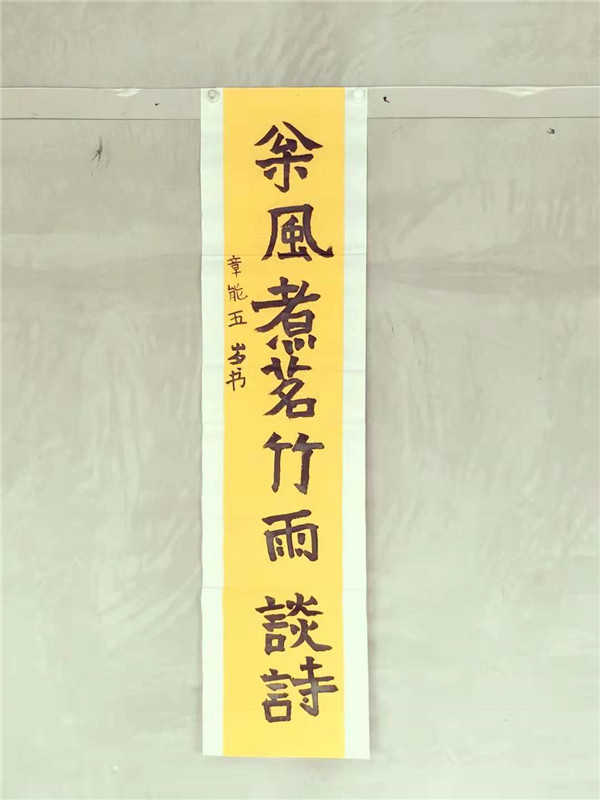 枀風煮茗竹雨談詩
章能五岁书